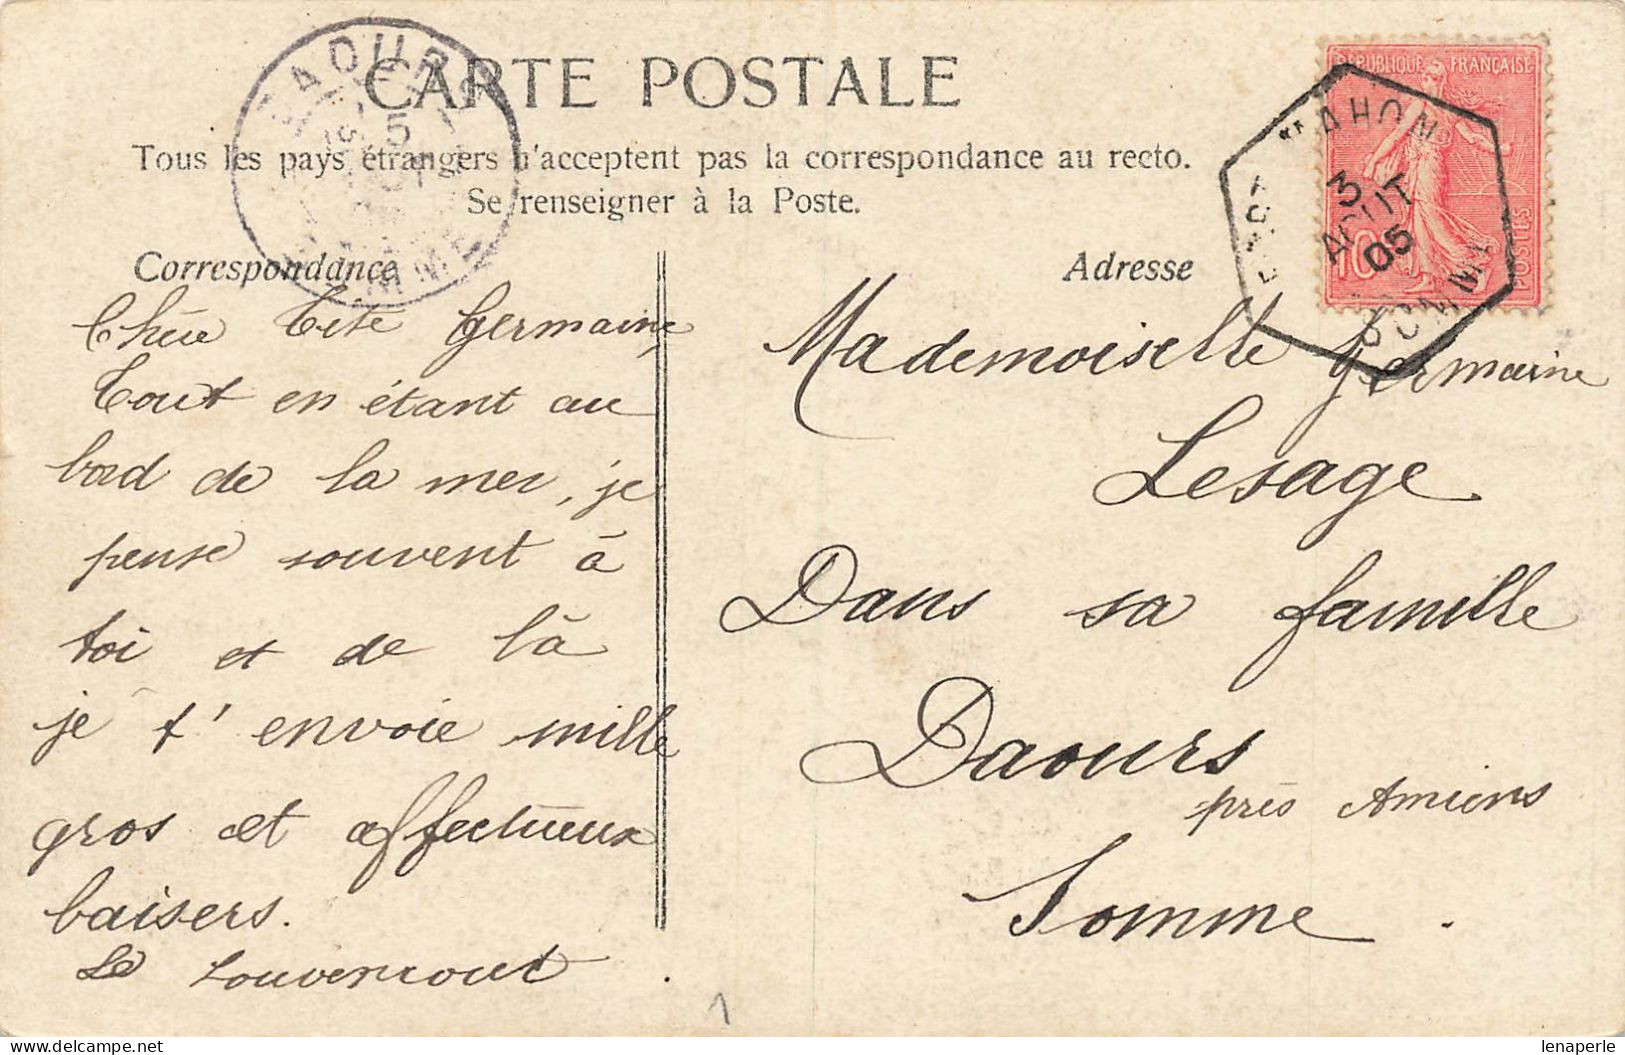 CARTE POSTALE
Tous les pays étrangers n'acceptent pas la correspondance au recto.
Se renseigner à la Poste.
Correspondance
Adresse
RÉPUBLIQUE FRANÇAISE
POSTES
10
3
AOUT
05
SOMME
DAOURS
Chère Tite Germaine
Tout en étant au
bord de la mer, je
pense souvent à
toi et de là
je t'envoie mille
gros et affectueux
baisers.
Mademoiselle Germaine
Lesage
Dans sa famille
Daours
près Amiens
Somme.
1
lenaperle